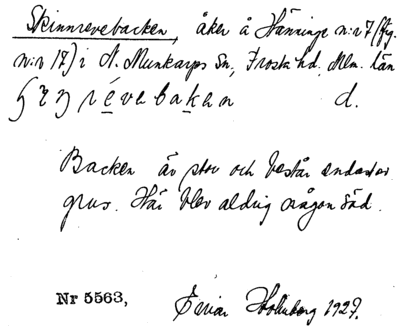 Skinnrevebacken, åker å Hänninge n:r 7 (fg.
n:r 17) i N. Munkarps Sn, Frosta hd, Mlm. län
d.
Backen är stor och består endast av
grus. Här blev aldrig någon säd.
Nr 5563, Holmberg 1927.